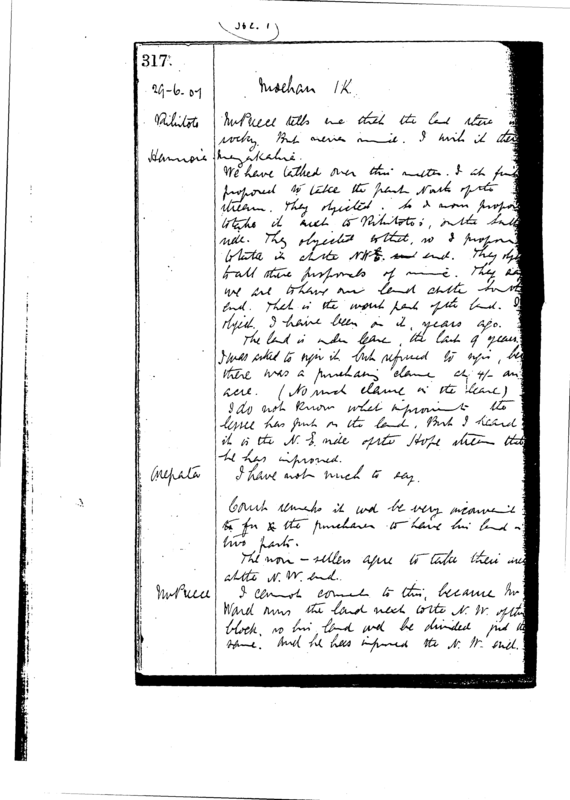 317.
29-6-07 Moehau 1K
Pihitoto Mr Preece tells me that the land there is
rocky. But never mind. I wish it there
We have talked over this matter. I at first
proposed to take the part North of the
stream. They objected. So I now propose
to take it next to Pihitoto's, on the South
side. They objected to that, so I propose
to take it at the end. They obj
to all these proposals of mine. They say
we are to have our land at the South
end. That is the worst part of the land. I
object. I have been on it, years ago.
The land is under lease, the last 9 years.
I was asked to sign it but refused to sign, be
there was a purchasing clause at 4/- an
acre. (No such clause in the lease)
I do not know what improvement the
lessee has put on the land, But I heard
it is the N.E. side of the Hope stream that
he has improved.
Arepata I have not much to say.
Court remarks it wd be very inconvenient
for the purchaser to have his land in
two parts.
The non-sellers agree to take their
at the N.W. end.
Mr Preece I cannot consent to this, because Mr
Ward owns the land next to the N.W. of the
block, so his land wd be divided just the
same. And he has improved the N.W. end.